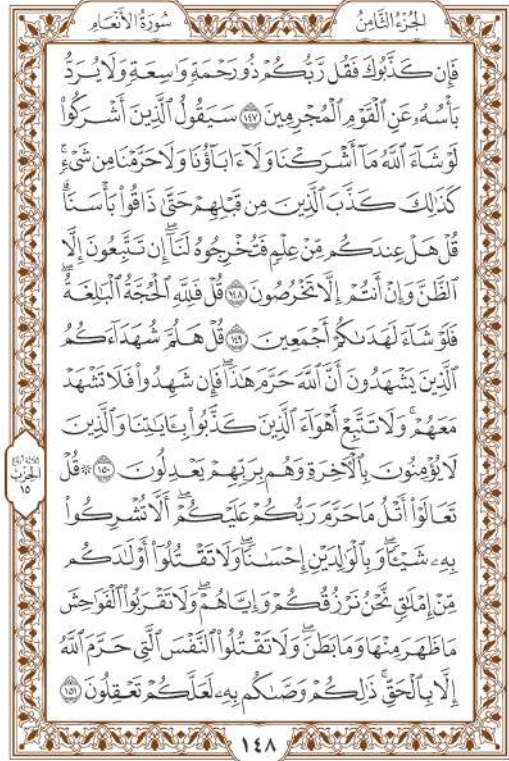 الجُزْءُ الثَّامِنُ
سُورَةُ الأَنْعَامِ
فَإِن كَذَّبُوكَ فَقُل رَّبُّكُمْ ذُو رَحْمَةٍ وَٰسِعَةٍ وَلَا يُرَدُّ
بَأْسُهُۥ عَنِ ٱلْقَوْمِ ٱلْمُجْرِمِينَ ١٤٧ سَيَقُولُ ٱلَّذِينَ أَشْرَكُوا۟
لَوْ شَآءَ ٱللَّهُ مَآ أَشْرَكْنَا وَلَآ ءَابَآؤُنَا وَلَا حَرَّمْنَا مِن شَىْءٍۚ
كَذَٰلِكَ كَذَّبَ ٱلَّذِينَ مِن قَبْلِهِمْ حَتَّىٰ ذَاقُوا۟ بَأْسَنَاۗ
قُلْ هَلْ عِندَكُم مِّنْ عِلْمٍ فَتُخْرِجُوهُ لَنَآۖ إِن تَتَّبِعُونَ إِلَّا
ٱلظَّنَّ وَإِنْ أَنتُمْ إِلَّا تَخْرُصُونَ ١٤٨ قُلْ فَلِلَّهِ ٱلْحُجَّةُ ٱلْبَٰلِغَةُۖ
فَلَوْ شَآءَ لَهَدَىٰكُمْ أَجْمَعِينَ ١٤٩ قُلْ هَلُمَّ شُهَدَآءَكُمُ
ٱلَّذِينَ يَشْهَدُونَ أَنَّ ٱللَّهَ حَرَّمَ هَٰذَاۖ فَإِن شَهِدُوا۟ فَلَا تَشْهَدْ
مَعَهُمْۚ وَلَا تَتَّبِعْ أَهْوَآءَ ٱلَّذِينَ كَذَّبُوا۟ بِـَٔايَٰتِنَا وَٱلَّذِينَ
لَا يُؤْمِنُونَ بِٱلْـَٔاخِرَةِ وَهُم بِرَبِّهِمْ يَعْدِلُونَ ١٥٠ ۞ قُلْ
تَعَالَوْا۟ أَتْلُ مَا حَرَّمَ رَبُّكُمْ عَلَيْكُمْۖ أَلَّا تُشْرِكُوا۟
بِهِۦ شَيْـًٔاۖ وَبِٱلْوَٰلِدَيْنِ إِحْسَٰنًاۖ وَلَا تَقْتُلُوٓا۟ أَوْلَٰدَكُم
مِّنْ إِمْلَٰقٍۖ نَّحْنُ نَرْزُقُكُمْ وَإِيَّاهُمْۖ وَلَا تَقْرَبُوا۟ ٱلْفَوَٰحِشَ
مَا ظَهَرَ مِنْهَا وَمَا بَطَنَۖ وَلَا تَقْتُلُوا۟ ٱلنَّفْسَ ٱلَّتِى حَرَّمَ ٱللَّهُ
إِلَّا بِٱلْحَقِّۚ ذَٰلِكُمْ وَصَّىٰكُم بِهِۦ لَعَلَّكُمْ تَعْقِلُونَ ١٥١
ثلاثة أرباع
الحِزْبِ
١٥
١٤٨